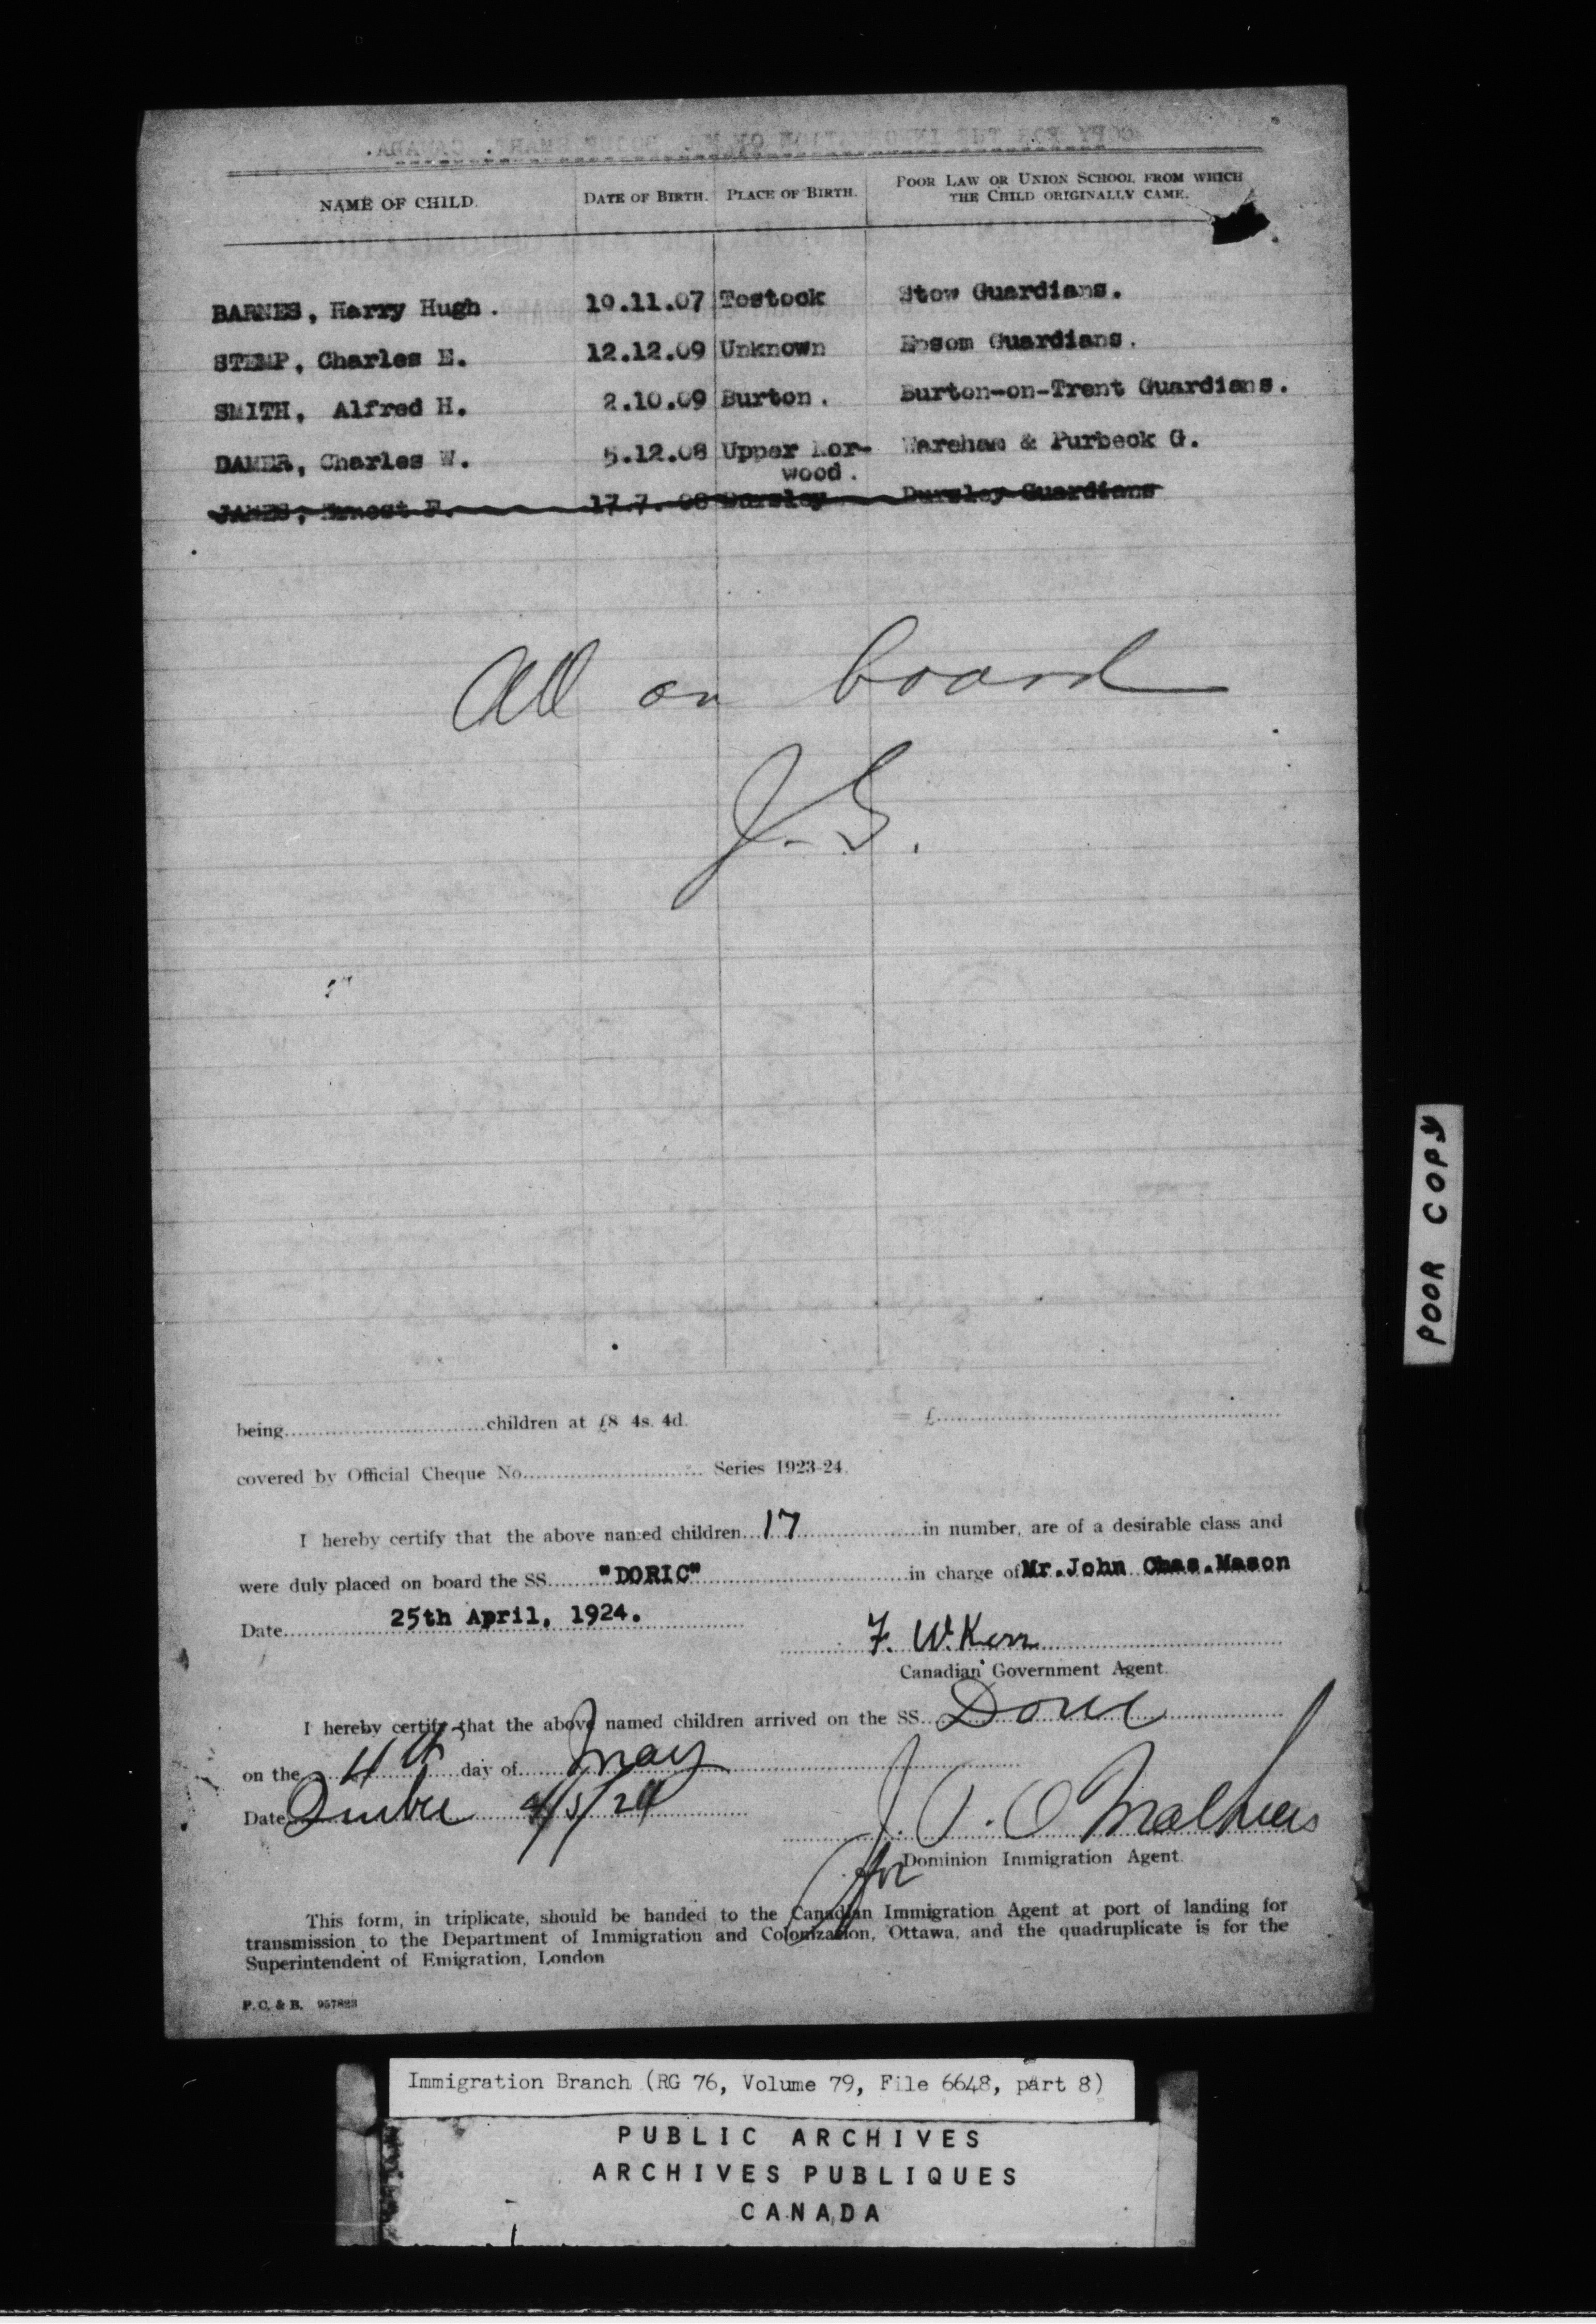 NAME OF CHILD. DATE OF BIRTH. PLACE OF BIRTH. POOR LAW OR UNION SCHOOL FROM WHICH
THE CHILD ORIGINALLY CAME.
BARNES, Harry Hugh. 10.11.07 Tostock Stow Guardians.
STEMP, Charles E. 12.12.09 Unknown Epsom Guardians.
SMITH, Alfred H. 2.10.09 Burton. Burton-on-Trent Guardians.
DAMER, Charles W. 5.12.08 Upper Lor- Wareham & Purbeck G.
wood.
JAMES, Ernest F. 17.7.08 Dursley Dursley Guardians
All on board
J. G.
being children at £8 4s. 4d. = £
covered by Official Cheque No. Series 1923-24.
I hereby certify that the above named children 17 in number, are of a desirable class and
were duly placed on board the SS. "DORIC" in charge of Mr. John Chas. Mason
Date 25th April, 1924.
F. W. Kerr
Canadian Government Agent.
I hereby certify that the above named children arrived on the SS. Doric
on the 4th day of May
Date Quebec 4/5/24
for Dominion Immigration Agent.
This form, in triplicate, should be handed to the Canadian Immigration Agent at port of landing for
transmission to the Department of Immigration and Colonization, Ottawa, and the quadruplicate is for the
Superintendent of Emigration, London
P. C. & B. 957823
POOR COPY
Immigration Branch (RG 76, Volume 79, File 6648, part 8)
PUBLIC ARCHIVES
ARCHIVES PUBLIQUES
CANADA